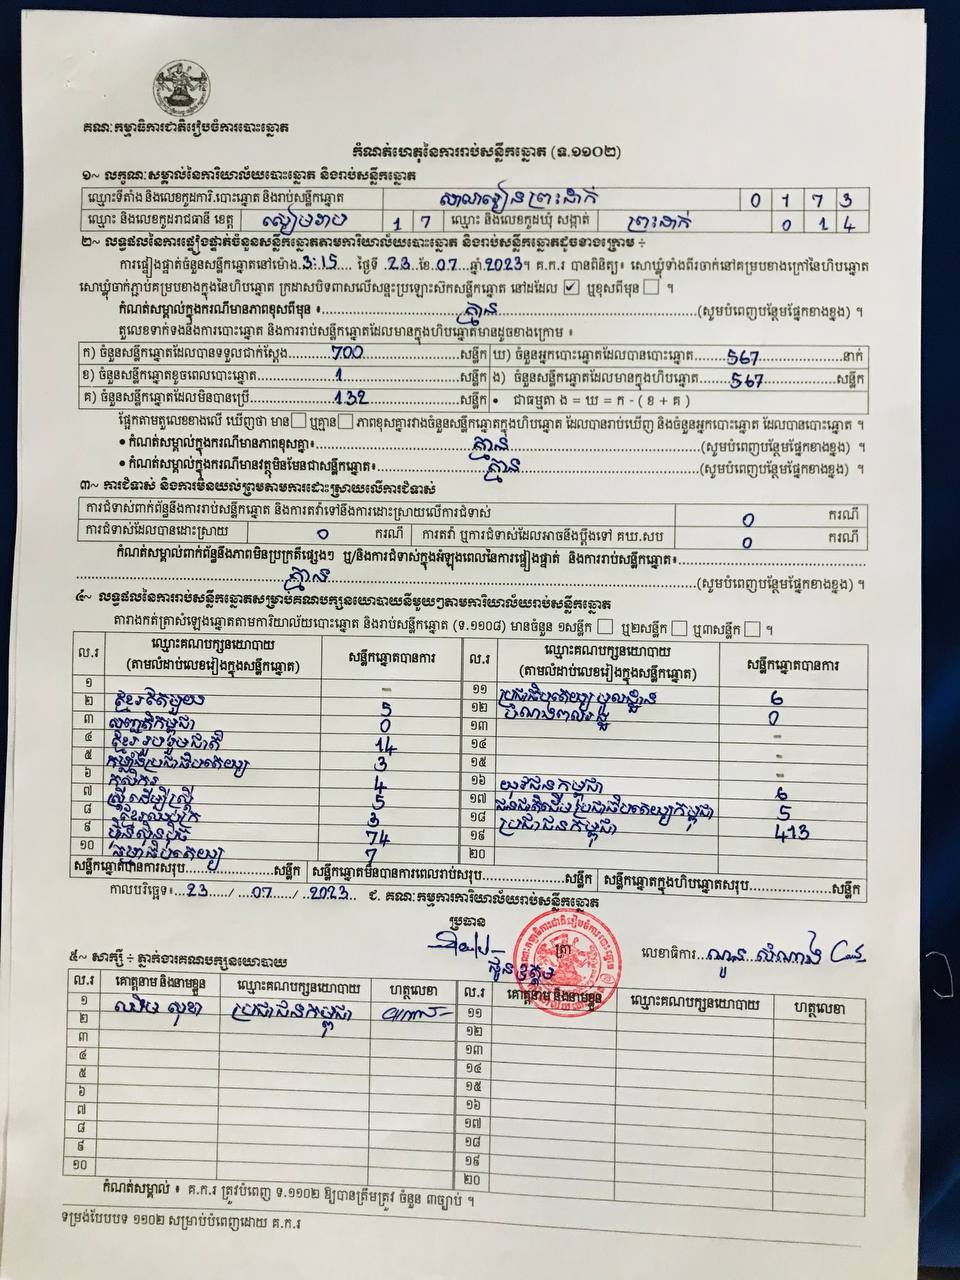 គណៈកម្មាធិការជាតិរៀបចំការបោះឆ្នោត
កំណត់ហេតុនៃការរាប់សន្លឹកឆ្នោត (ទ.១១០២)
១~ លក្ខណៈសម្គាល់នៃការិយាល័យបោះឆ្នោត និងរាប់សន្លឹកឆ្នោត
ឈ្មោះទីតាំង និងលេខកូដការិ.បោះឆ្នោត និងរាប់សន្លឹកឆ្នោត សាលារៀនព្រះដាក់ 0 1 7 3
ឈ្មោះ និងលេខកូដរាជធានី ខេត្ត សៀមរាប 1 7 ឈ្មោះ និងលេខកូដឃុំ សង្កាត់ ព្រះដាក់ 0 1 4
២~ លទ្ធផលនៃការផ្ទៀងផ្ទាត់ចំនួនសន្លឹកឆ្នោតតាមការិយាល័យបោះឆ្នោត និងរាប់សន្លឹកឆ្នោតដូចខាងក្រោម ÷
ការផ្ទៀងផ្ទាត់ចំនួនសន្លឹកឆ្នោតនៅម៉ោង 3:15 ថ្ងៃទី 23 ខែ 07 ឆ្នាំ 2023។ គ.ក.រ បានពិនិត្យ៖ សោឃ្លុំទាំងពីរចាក់នៅគម្របខាងក្រៅនៃហិបឆ្នោត
សោឃ្លុំចាក់ភ្ជាប់គម្របខាងក្នុងនៃហិបឆ្នោត ក្រដាសបិទពាសលើសន្ទះប្រឡោះស៊កសន្លឹកឆ្នោត នៅដដែល ✓ ឬខុសពីមុន ។
កំណត់សម្គាល់ក្នុងករណីមានភាពខុសពីមុន ៖ គ្មាន (សូមបំពេញបន្ថែមផ្នែកខាងខ្នង) ។
តួលេខទាក់ទងនឹងការបោះឆ្នោត និងការរាប់សន្លឹកឆ្នោតដែលមានក្នុងហិបឆ្នោតមានដូចខាងក្រោម ៖
ក) ចំនួនសន្លឹកឆ្នោតដែលបានទទួលជាក់ស្តែង 700 សន្លឹក ឃ) ចំនួនអ្នកបោះឆ្នោតដែលបានបោះឆ្នោត 567 នាក់
ខ) ចំនួនសន្លឹកឆ្នោតខូចពេលបោះឆ្នោត 1 សន្លឹក ង) ចំនួនសន្លឹកឆ្នោតដែលមានក្នុងហិបឆ្នោត 567 សន្លឹក
គ) ចំនួនសន្លឹកឆ្នោតដែលមិនបានប្រើ 132 សន្លឹក • ជាធម្មតា ង = ឃ = ក - ( ខ + គ )
ផ្អែកតាមតួលេខខាងលើ ឃើញថា មាន ឬគ្មាន ភាពខុសគ្នារវាងចំនួនសន្លឹកឆ្នោតក្នុងហិបឆ្នោត ដែលបានរាប់ឃើញ និងចំនួនអ្នកបោះឆ្នោត ដែលបានបោះឆ្នោត ។
• កំណត់សម្គាល់ក្នុងករណីមានភាពខុសគ្នា៖ គ្មាន (សូមបំពេញបន្ថែមផ្នែកខាងខ្នង) ។
• កំណត់សម្គាល់ក្នុងករណីមានវត្ថុមិនមែនជាសន្លឹកឆ្នោត៖ គ្មាន (សូមបំពេញបន្ថែមផ្នែកខាងខ្នង) ។
៣~ ការជំទាស់ និងការមិនយល់ព្រមតាមការដោះស្រាយលើការជំទាស់
ការជំទាស់ពាក់ព័ន្ធនឹងការរាប់សន្លឹកឆ្នោត និងការតវ៉ាទៅនឹងការដោះស្រាយលើការជំទាស់ 0 ករណី
ការជំទាស់ដែលបានដោះស្រាយ 0 ករណី ការតវ៉ា ឬការជំទាស់ដែលអាចនឹងប្តឹងទៅ គឃ.សប 0 ករណី
កំណត់សម្គាល់ពាក់ព័ន្ធនឹងភាពមិនប្រក្រតីផ្សេងៗ ឬ/និងការជំទាស់ក្នុងអំឡុងពេលនៃការផ្ទៀងផ្ទាត់ និងការរាប់សន្លឹកឆ្នោត៖
គ្មាន (សូមបំពេញបន្ថែមផ្នែកខាងខ្នង) ។
៤~ លទ្ធផលនៃការរាប់សន្លឹកឆ្នោតសម្រាប់គណបក្សនយោបាយនីមួយៗតាមការិយាល័យរាប់សន្លឹកឆ្នោត
តារាងកត់ត្រាសំឡេងឆ្នោតតាមការិយាល័យបោះឆ្នោត និងរាប់សន្លឹកឆ្នោត (ទ.១១០៨) មានចំនួន ១សន្លឹក ឬ២សន្លឹក ឬ៣សន្លឹក ។
ល.រ ឈ្មោះគណបក្សនយោបាយ សន្លឹកឆ្នោតបានការ ល.រ ឈ្មោះគណបក្សនយោបាយ សន្លឹកឆ្នោតបានការ
(តាមលំដាប់លេខរៀងក្នុងសន្លឹកឆ្នោត) (តាមលំដាប់លេខរៀងក្នុងសន្លឹកឆ្នោត)
១ - ១១ ប្រជាធិបតេយ្យមូលដ្ឋាន 6
២ ខ្មែរតែមួយ 5 ១២ បំណងពលរដ្ឋ 0
៣ សញ្ជាតិកម្ពុជា 0 ១៣ -
៤ ខ្មែររួបរួមជាតិ 14 ១៤ -
៥ កម្លាំងប្រជាធិបតេយ្យ 3 ១៥ -
៦ កសិករ 4 ១៦ យុវជនកម្ពុជា 6
៧ ស្ត្រីដើម្បីស្ត្រី 5 ១៧ ជនជាតិដើមប្រជាធិបតេយ្យកម្ពុជា 5
៨ ខ្មែរឈប់ក្រ 3 ១៨ ប្រជាជនកម្ពុជា 413
៩ ហ៊្វុនស៊ិនប៉ិច 74 ១៩
១០ ធម្មាធិបតេយ្យ 7 ២០
សន្លឹកឆ្នោតបានការសរុប សន្លឹក សន្លឹកឆ្នោតមិនបានការពេលរាប់សរុប សន្លឹក សន្លឹកឆ្នោតក្នុងហិបឆ្នោតសរុប សន្លឹក
កាលបរិច្ឆេទ៖ 23 / 07 / 2023 ជ. គណៈកម្មការការិយាល័យរាប់សន្លឹកឆ្នោត
ប្រធាន
ត្រា លេខាធិការ ណុន សំណាង
៥~ សាក្សី ÷ ភ្នាក់ងារគណបក្សនយោបាយ
ល.រ គោត្តនាម និងនាមខ្លួន ឈ្មោះគណបក្សនយោបាយ ហត្ថលេខា ល.រ គោត្តនាម និងនាមខ្លួន ឈ្មោះគណបក្សនយោបាយ ហត្ថលេខា
១ ឈឹម សុខា ប្រជាជនកម្ពុជា ១១
២ ១២
៣ ១៣
៤ ១៤
៥ ១៥
៦ ១៦
៧ ១៧
៨ ១៨
៩ ១៩
១០ ២០
កំណត់សម្គាល់ ៖ គ.ក.រ ត្រូវបំពេញ ទ.១១០២ ឱ្យបានត្រឹមត្រូវ ចំនួន ៣ច្បាប់ ។
ទម្រង់បែបបទ ១១០២ សម្រាប់បំពេញដោយ គ.ក.រ